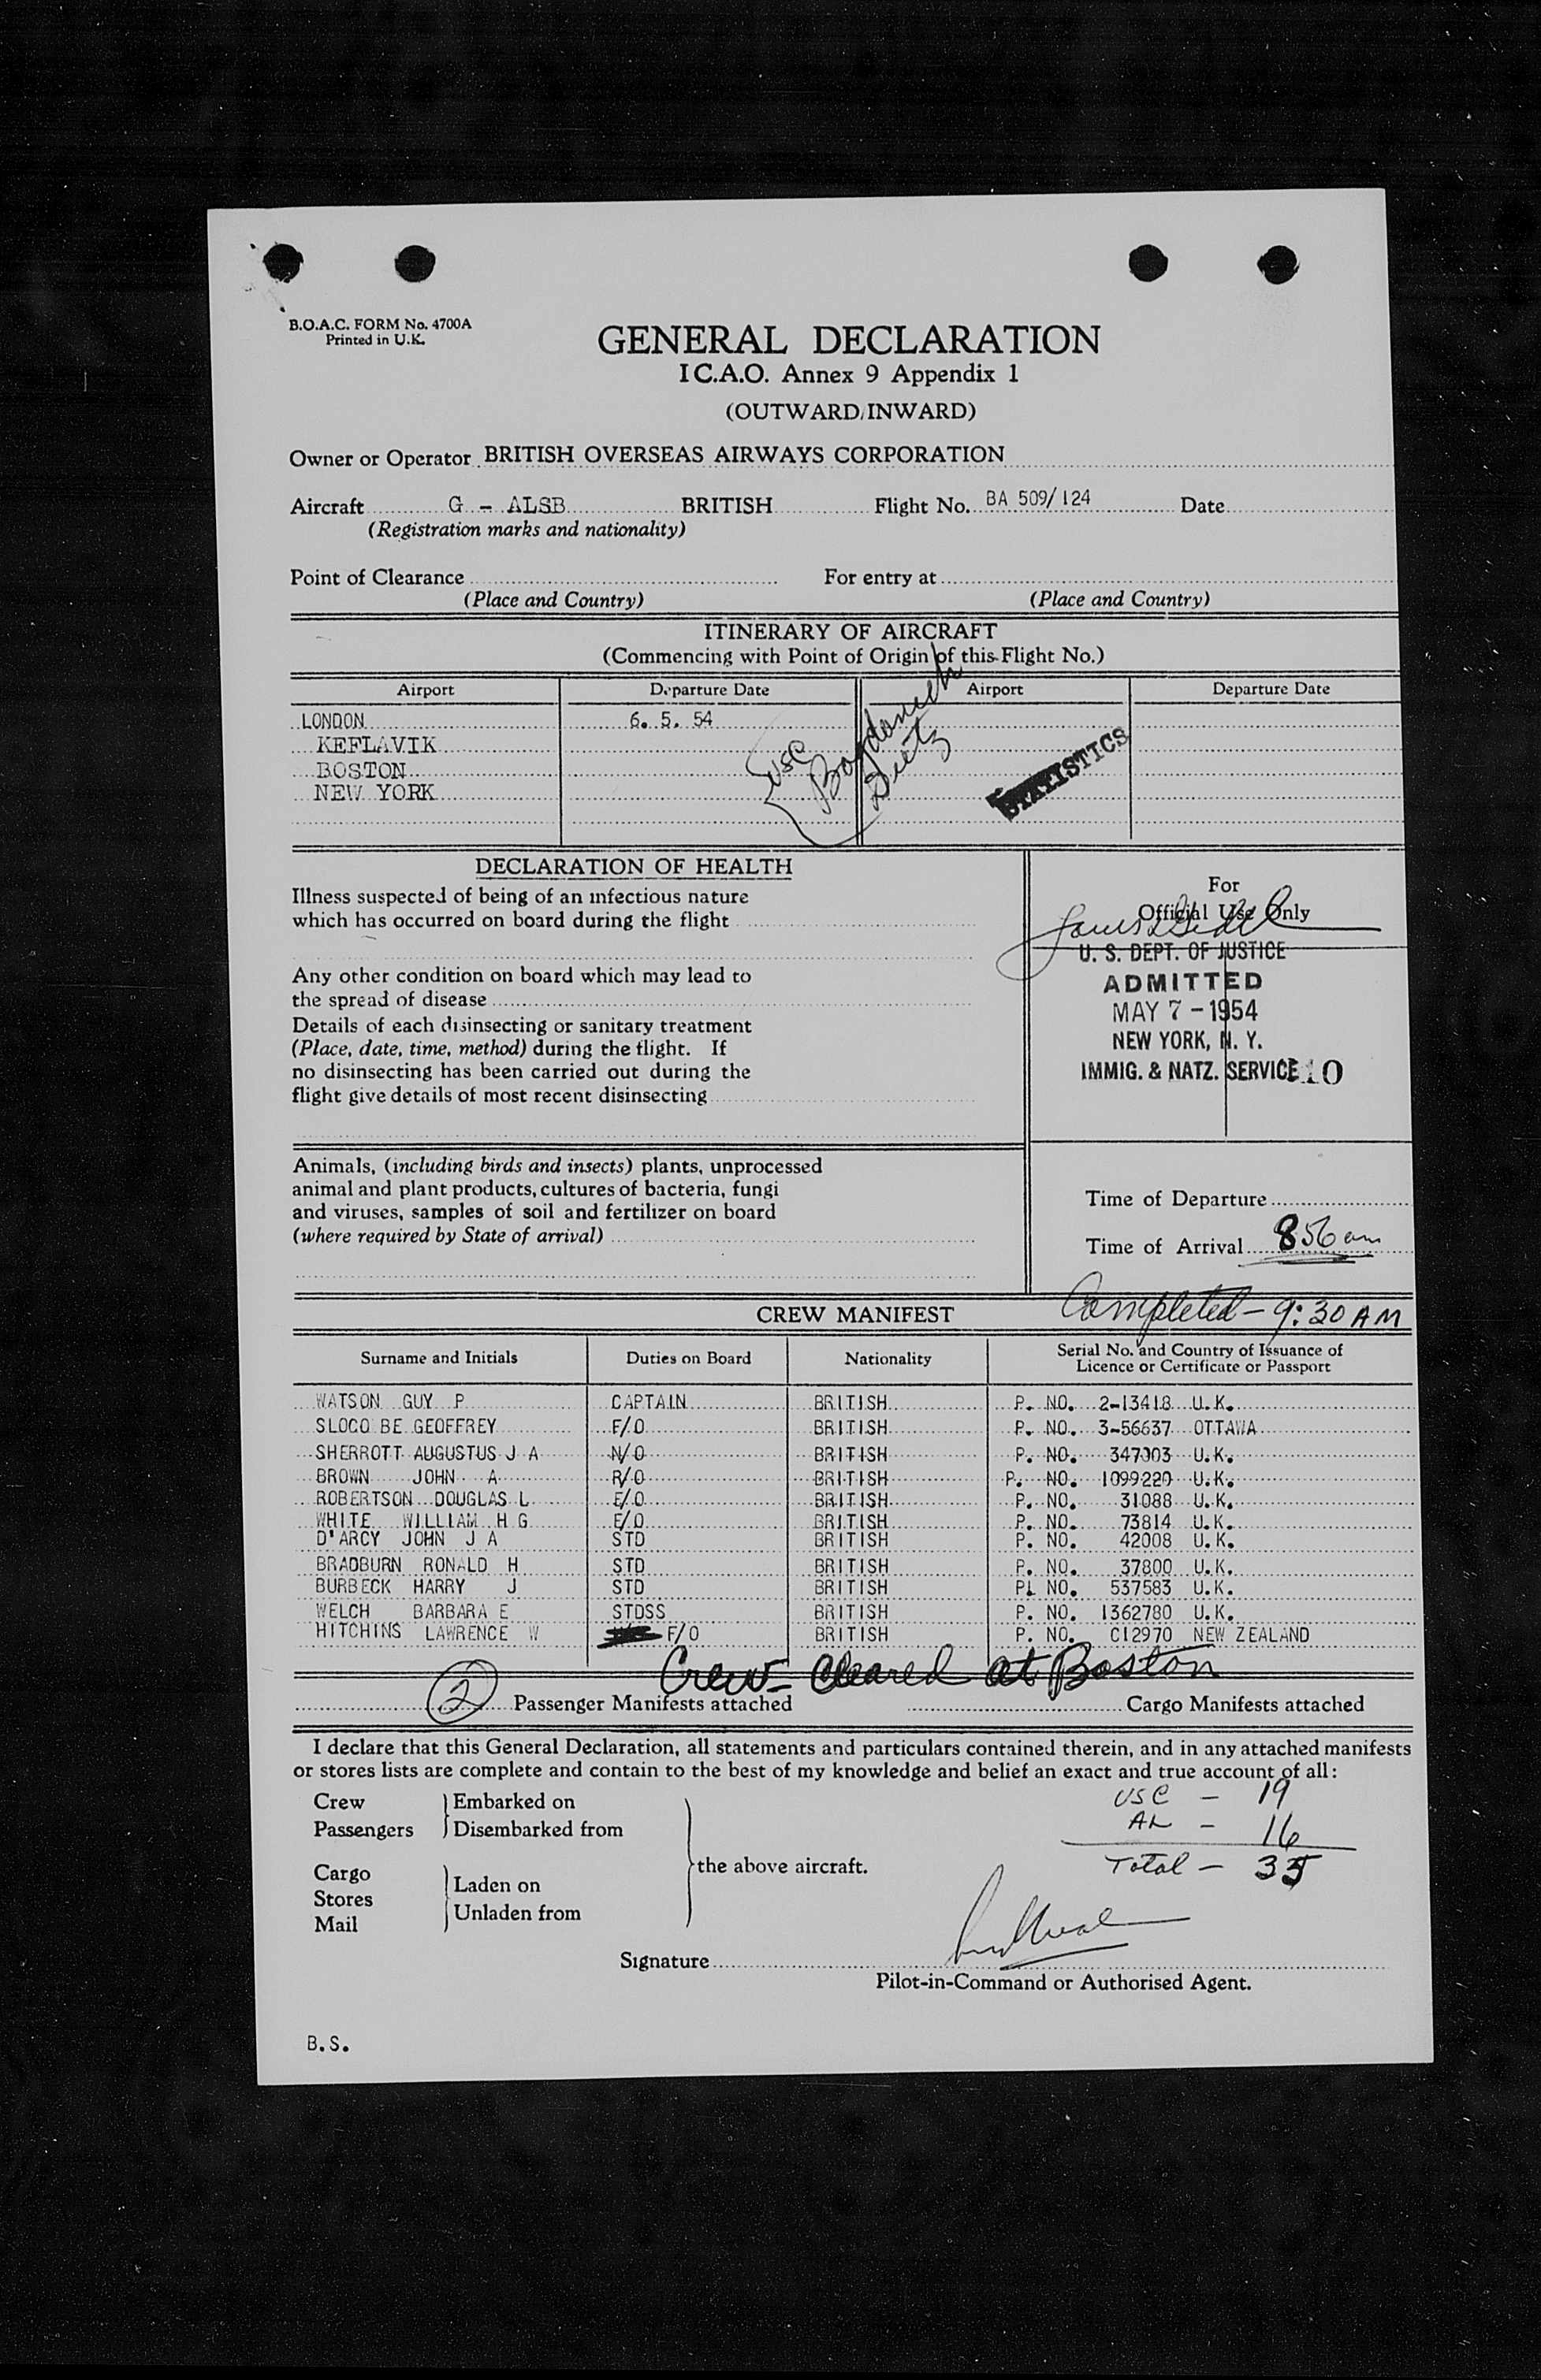 B.O.A.C. FORM No. 4700A
Printed in U.K.
GENERAL DECLARATION
I C.A.O. Annex 9 Appendix 1
(OUTWARD/INWARD)
Owner or Operator BRITISH OVERSEAS AIRWAYS CORPORATION
Aircraft G - ALSB BRITISH Flight No. BA 509/124 Date
(Registration marks and nationality)
Point of Clearance For entry at
(Place and Country) (Place and Country)
ITINERARY OF AIRCRAFT
(Commencing with Point of Origin of this Flight No.)
Airport Departure Date Airport Departure Date
LONDON 6. 5. 54
KEFLAVIK
BOSTON
NEW YORK
USC
Dietz
STATISTICS
DECLARATION OF HEALTH
Illness suspected of being of an infectious nature
which has occurred on board during the flight
Any other condition on board which may lead to
the spread of disease
Details of each disinsecting or sanitary treatment
(Place, date, time, method) during the flight. If
no disinsecting has been carried out during the
flight give details of most recent disinsecting
For
Official Use Only
U. S. DEPT. OF JUSTICE
ADMITTED
MAY 7 - 1954
NEW YORK, N. Y.
IMMIG. & NATZ. SERVICE 10
Animals, (including birds and insects) plants, unprocessed
animal and plant products, cultures of bacteria, fungi
and viruses, samples of soil and fertilizer on board
(where required by State of arrival)
Time of Departure
Time of Arrival 8 56 am
Completed - 9:30 AM
CREW MANIFEST
Surname and Initials Duties on Board Nationality Serial No. and Country of Issuance of
Licence or Certificate or Passport
WATSON GUY P CAPTAIN BRITISH P. NO. 2-13418 U.K.
SLOCO BE GEOFFREY F/O BRITISH P. NO. 3-56637 OTTAWA
SHERROTT AUGUSTUS J A N/O BRITISH P. NO. 347003 U.K.
BROWN JOHN A R/O BRITISH P. NO. 1099220 U.K.
ROBERTSON DOUGLAS L E/O BRITISH P. NO. 31088 U.K.
WHITE WILLIAM H G E/O BRITISH P. NO. 73814 U.K.
D'ARCY JOHN J A STD BRITISH P. NO. 42008 U.K.
BRADBURN RONALD H STD BRITISH P. NO. 37800 U.K.
BURBECK HARRY J STD BRITISH PL NO. 537583 U.K.
WELCH BARBARA E STDSS BRITISH P. NO. 1362780 U.K.
HITCHINS LAWRENCE W F/O BRITISH P. NO. C12970 NEW ZEALAND
Crew - Cleared at Boston
2 Passenger Manifests attached Cargo Manifests attached
I declare that this General Declaration, all statements and particulars contained therein, and in any attached manifests
or stores lists are complete and contain to the best of my knowledge and belief an exact and true account of all:
Crew Embarked on
Passengers Disembarked from
Cargo
Stores Laden on
Mail Unladen from
the above aircraft.
USC - 19
AL - 16
Total - 35
Signature
Pilot-in-Command or Authorised Agent.
B.S.